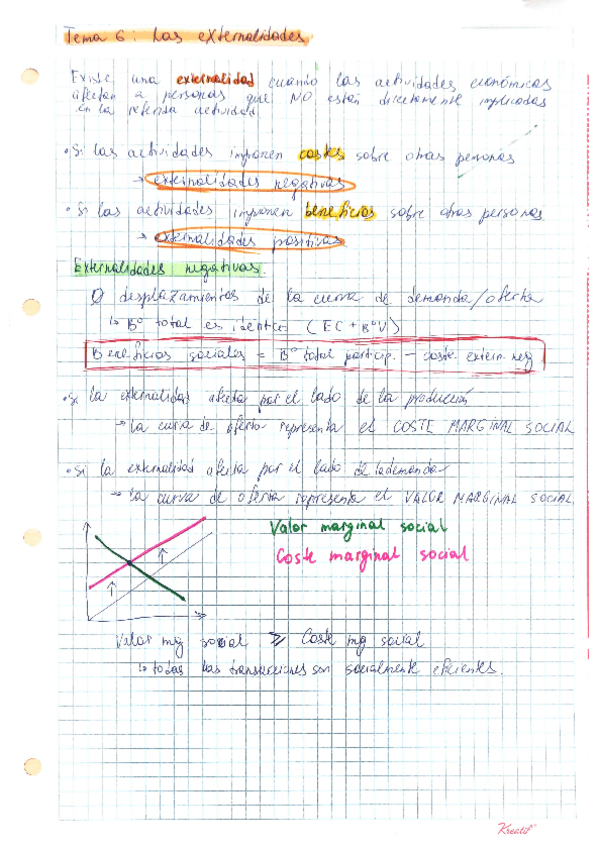 Tema 6: Las externalidades.
Existe una externalidad cuando las actividades económicas
afectan a personas que NO están directamente implicadas
en la referida actividad.
• Si las actividades imponen costes sobre otras personas
→ externalidades negativas
• Si las actividades imponen beneficios sobre otras personas
→ externalidades positivas
Externalidades negativas.
desplazamientos de la curva de demanda/oferta
↳ Bº total es idéntico (EC + BºV)
Beneficios sociales = Bº total particip. - coste extern. neg
• Si la externalidad afecta por el lado de la producción
→ la curva de oferta representa el COSTE MARGINAL SOCIAL
• Si la externalidad afecta por el lado de la demanda
→ la curva de oferta representa el VALOR MARGINAL SOCIAL.
Valor marginal social
Coste marginal social
Valor mg social ≥ Coste mg social
↳ todas las transacciones son socialmente eficientes.
Kreatif